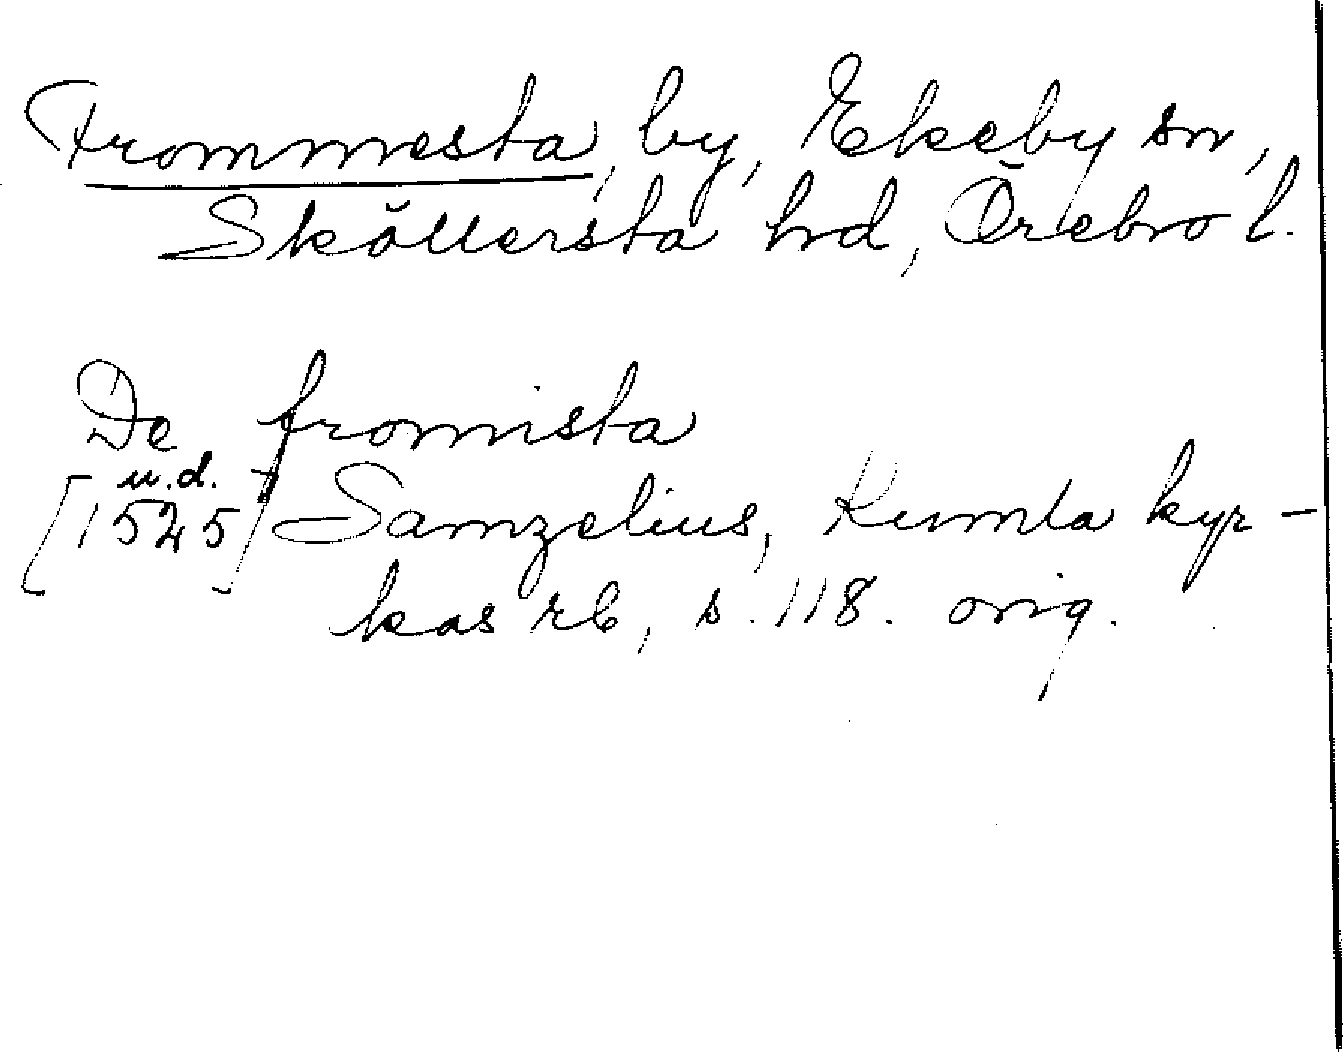 Frommesta, by, Ekeby sn,
Sköllersta hrd, Örebro l.
De fromista
u.d.
[1525] Samzelius, Kumla kyr-
kas rb, s. 118. orig.